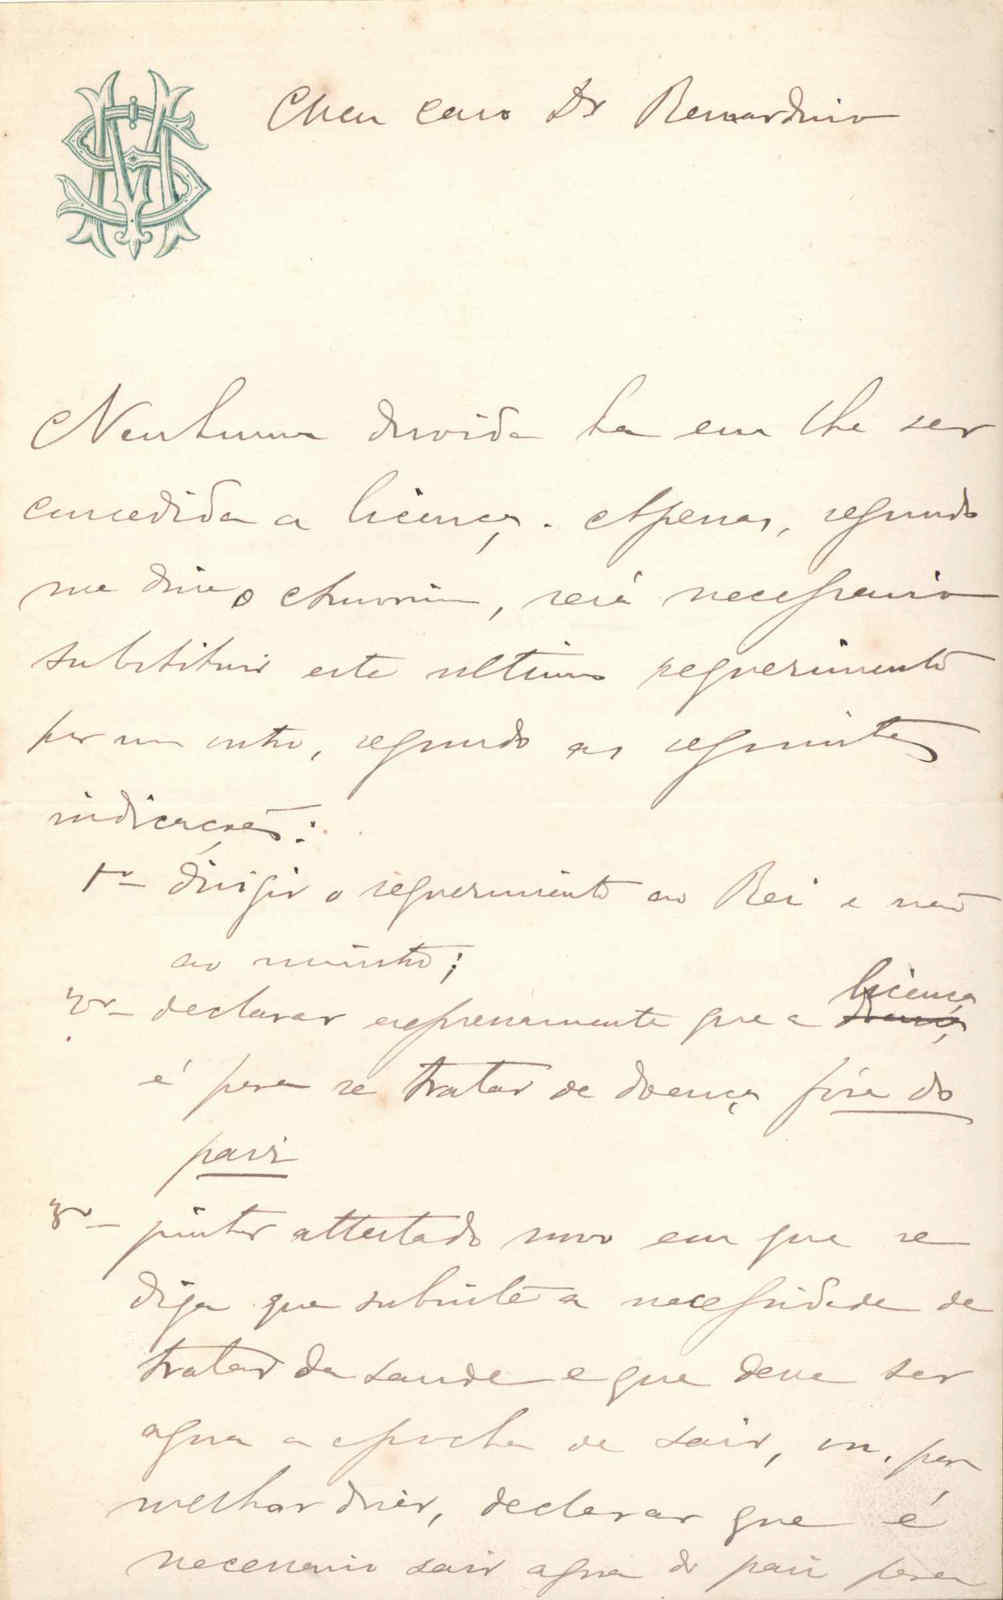 Meu caro Dr Bernardino
Nenhuma duvida ha em lhe ser
concedida a licença. Apenas, segundo
me disse o Amorim, será necessario
substituir este ultimo requerimento
por um outro, segundo as seguintes
indicações:
1º - dirigir o requerimento ao Rei e não
ao ministro;
2º - declarar expressamente que a licença
é para se tratar de doença fóra do
paiz
3º - juntar attestado novo em que se
diga que subsiste a necessidade de
tratar da saude e que deve ser
agora a epocha de sair, ou, por
melhor dizer, declarar que é
necessario sair agora do paiz para